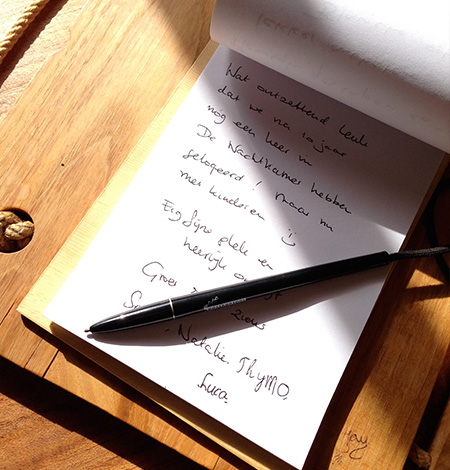 Wat ontzettend leuk
dat we na 10 jaar
nog een keer in
De Nachtkamer hebben
gelogeerd! maar nu
met kinderen ☺
Erg fijne plek en
heerlijk
Groes
Natalie. Thymo,
Luca.